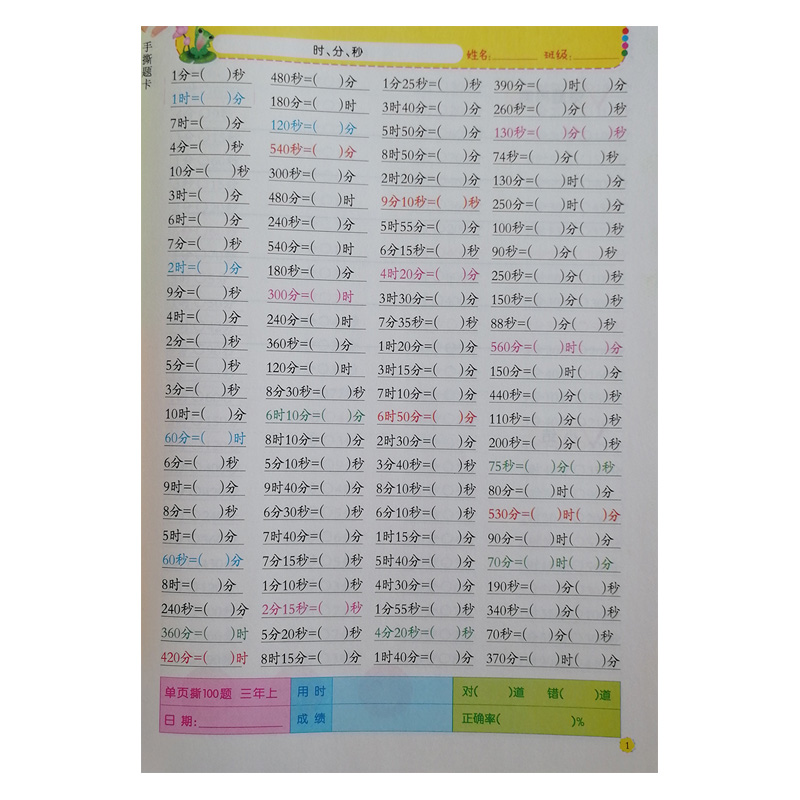 手撕题卡
时、分、秒
姓名:________ 班级:________
1分=( )秒 480秒=( )分 1分25秒=( )秒 390分=( )时( )分
1时=( )分 180分=( )时 3时40分=( )分 260秒=( )分( )秒
7时=( )分 120秒=( )分 5时50分=( )分 130秒=( )分( )秒
4分=( )秒 540秒=( )分 8时50分=( )分 74秒=( )分( )秒
10分=( )秒 300秒=( )分 2时20分=( )分 130分=( )时( )分
3时=( )分 480分=( )时 9分10秒=( )秒 250分=( )时( )分
6时=( )分 240秒=( )分 5时55分=( )分 100秒=( )分( )秒
7分=( )秒 540分=( )时 6分15秒=( )秒 90秒=( )分( )秒
2时=( )分 180秒=( )分 4时20分=( )分 250秒=( )分( )秒
9分=( )秒 300分=( )时 3时30分=( )分 150秒=( )分( )秒
4时=( )分 240分=( )时 7分35秒=( )秒 88秒=( )分( )秒
2分=( )秒 360秒=( )分 1时20分=( )分 560分=( )时( )分
5分=( )秒 120分=( )时 3时15分=( )分 150分=( )时( )分
3分=( )秒 8分30秒=( )秒 7时10分=( )分 440秒=( )分( )秒
10时=( )分 6时10分=( )分 6时50分=( )分 110秒=( )分( )秒
60分=( )时 8时10分=( )分 2时30分=( )分 200秒=( )分( )秒
6分=( )秒 5分10秒=( )秒 3分40秒=( )秒 75秒=( )分( )秒
9时=( )分 9时40分=( )分 8分10秒=( )秒 80分=( )时( )分
8分=( )秒 6分30秒=( )秒 6分10秒=( )秒 530分=( )时( )分
5时=( )分 7时40分=( )分 1时15分=( )分 90分=( )时( )分
60秒=( )分 7分15秒=( )秒 5时40分=( )分 70分=( )时( )分
8时=( )分 1分10秒=( )秒 4时30分=( )分 190秒=( )分( )秒
240秒=( )分 2分15秒=( )秒 1分55秒=( )秒 340秒=( )分( )秒
360分=( )时 5分20秒=( )秒 4分20秒=( )秒 70秒=( )分( )秒
420分=( )时 8时15分=( )分 1时40分=( )分 370分=( )时( )分
单页撕100题 三年上 用时 对( )道 错( )道
日期:________ 成绩 正确率( )%
1